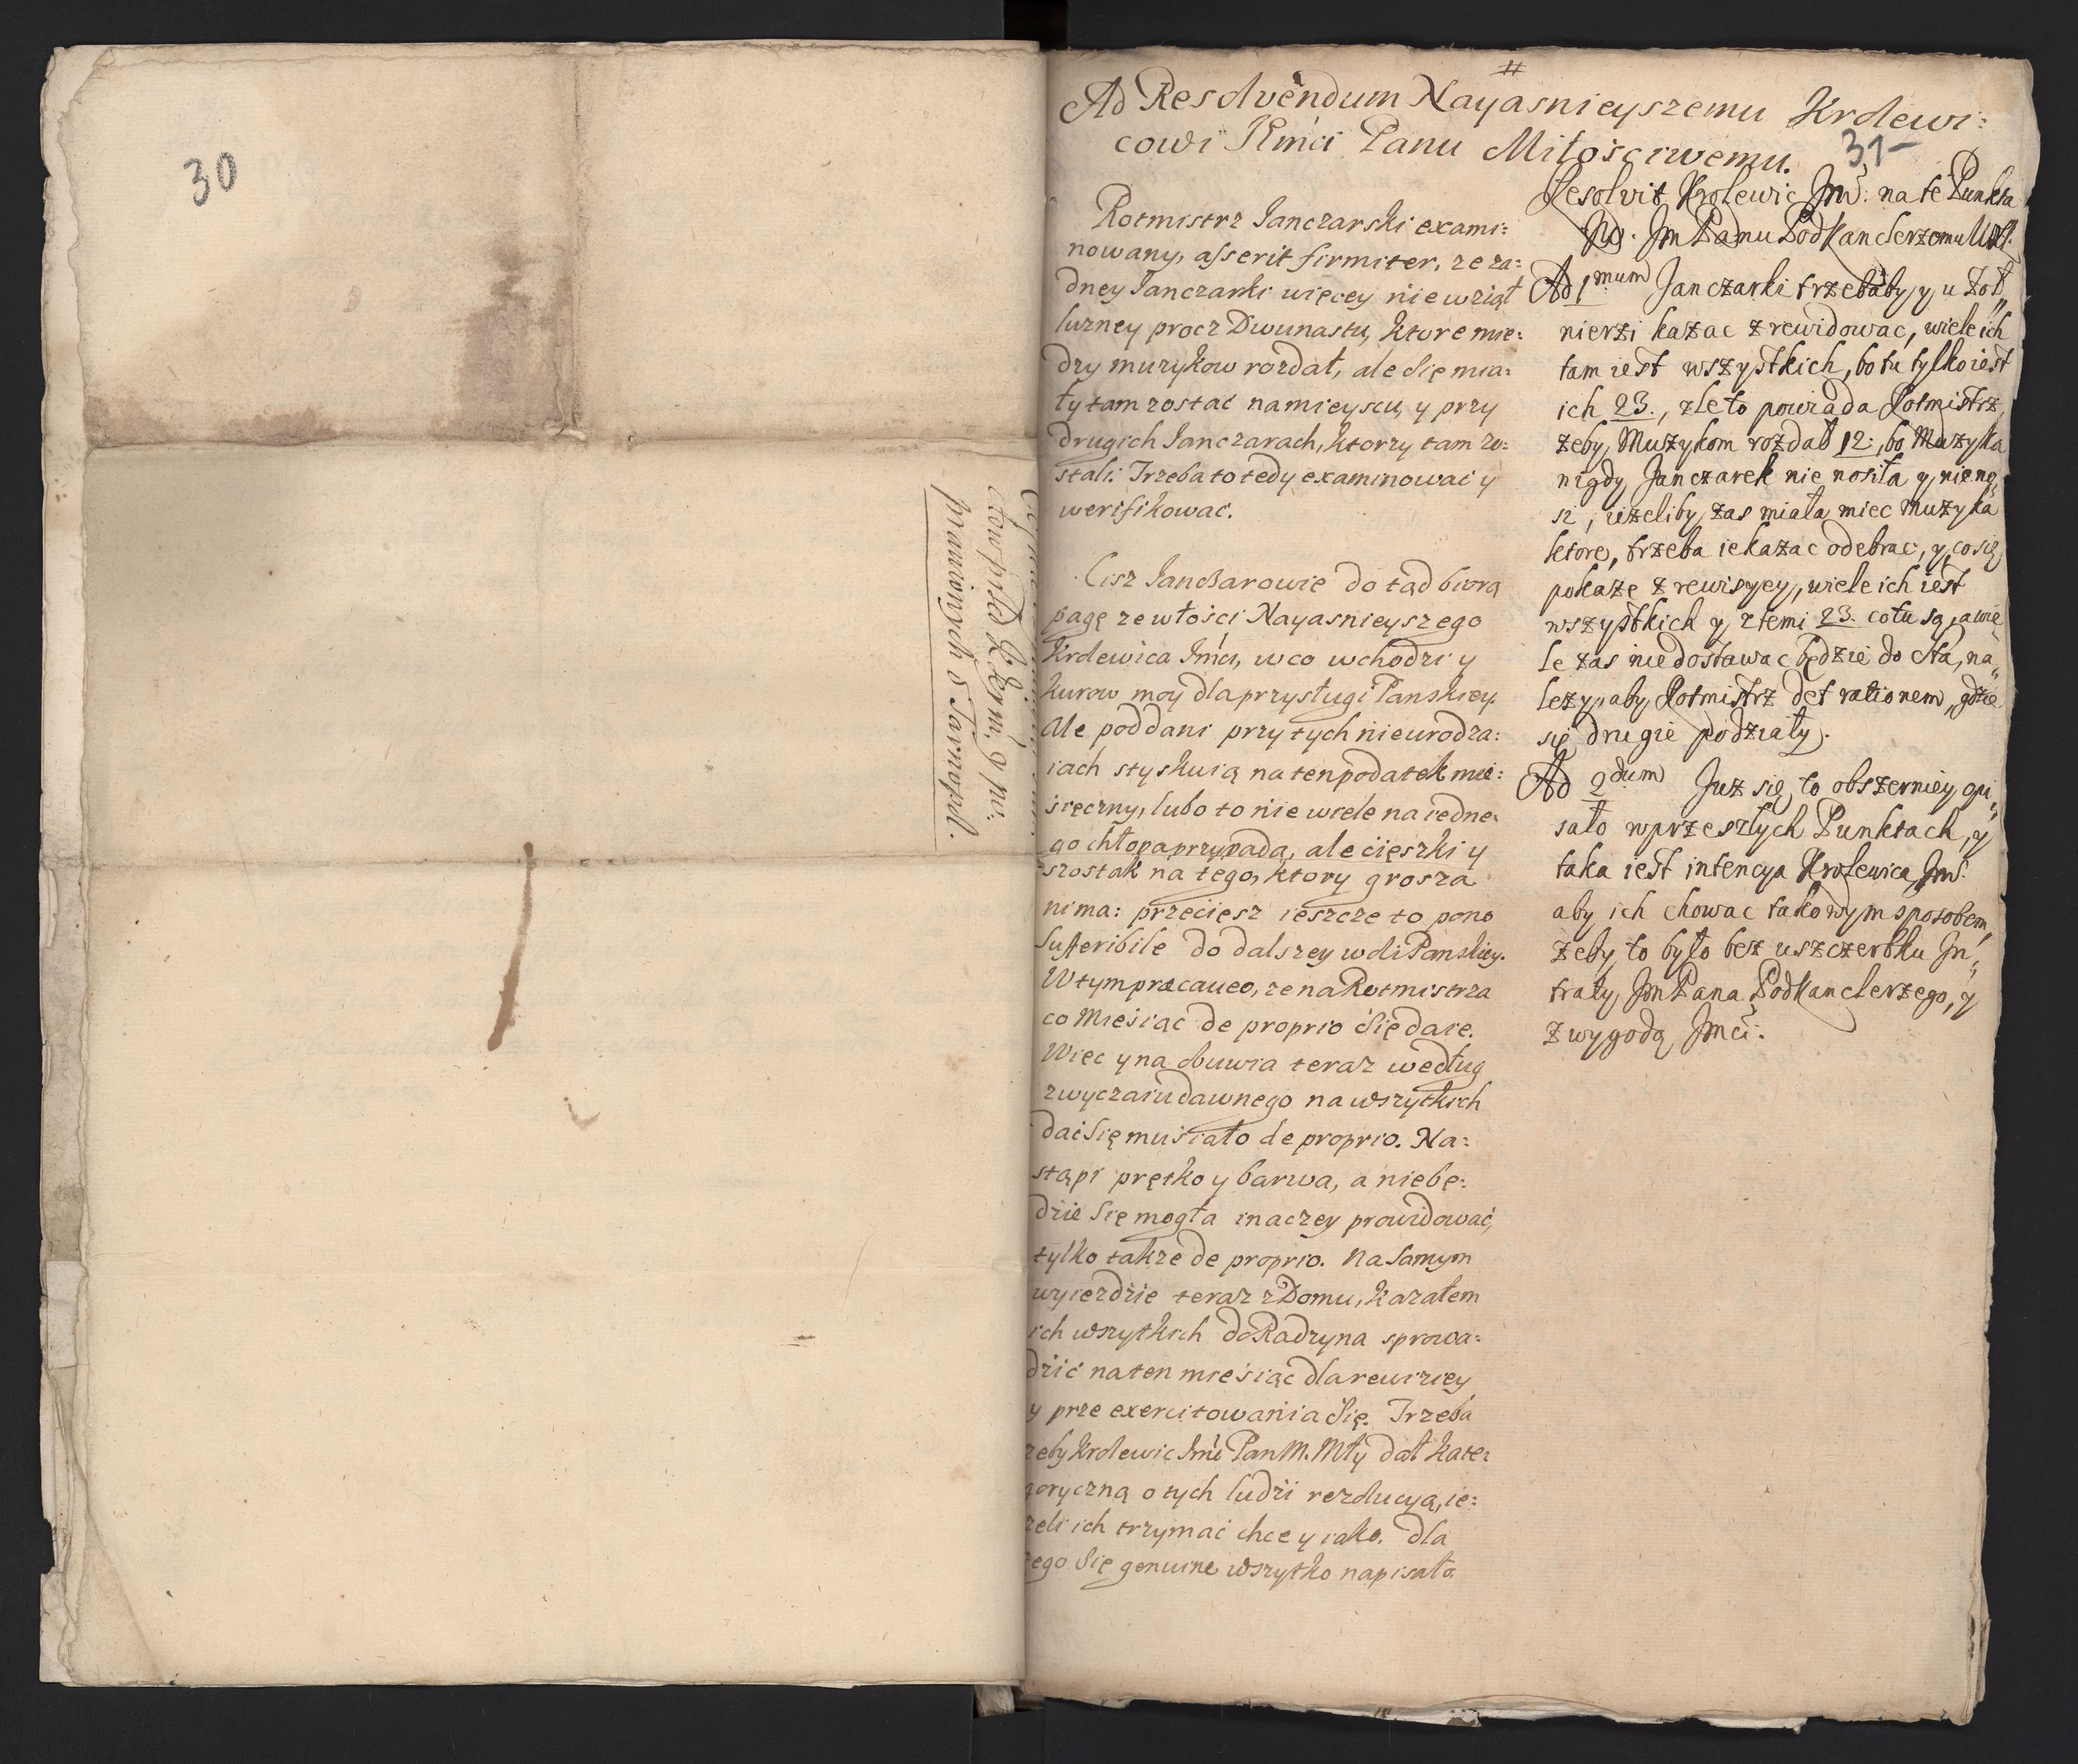 30
ctow przed S. Germ: y po:
prawionych o Tarnopol.
#
Ad Resolvendum Nayasnieyszemu Krolewi:
cowi JEmci Panu Miłosciwemu.
31-
Rotmistrz Janczarski exami:
nowany, asserit firmiter, ze za:
dney Janczarki więcey nie wziął
luzney procz Dwunastu, ktore mie:
dzy muzykow rozdał, ale się mia:
ły tam zostać na mieyscu, y przy
drugich Janczarach, ktorzy tam zo:
stali. Trzeba to tedy examinować y
werifikować.
Cisz Janczarowie do tąd biorą
pagę ze włości Nayasnieyszego
Krolewica Jmci, w co wchodzi y
Kurow moy dla przysługi Panskiey.
Ale poddani przy tych nieurodza:
iach styskuią na ten podatek mie:
sięczny, lubo to nie wiele na iedne:
go chłopa przypada, ale cięszki y
szostak na tego, ktory grosza
nima: przeciesz ieszcze to pono
sufferibile do dalszey woli Panskiey.
W tym præcaueo, ze na Rotmistrza
co Miesiąc de proprio się daie.
Więc y na obuwia teraz według
zwyczaiu dawnego na wszytkich
dać się musiało de proprio. Na:
stąpi prętko y barwa, a niebę:
dzie się mogła inaczey prowidować,
tylko takze de proprio. Na samym
wyiezdzie teraz z Domu, kazałem
ich wszytkich do Radzyna sprowa:
dzić na ten miesiąc dla rewiziey
y prze exercitowania się. Trzeba
zeby Krolewic Jmć Pan M. Mły dał kate:
goryczną o tych ludzi rezolucyą, ie:
zeli ich trzymać chce y iako. Dla
tego się genuine wszytko napisało
Resolvit Krolewic Jmć: na te Punkta
Jm Panu Podkanclerzemu
Ad 1mum Janczarki trzebaby, y u Zoł„
nierzi kazac zrewidowac, wiele ich
tam iest wszystkich, bo tu tylko iest
ich 23., zle to powiada Rotmistrz,
zeby, Muzykom rozdał 12:, bo Muzyka
nigdy Janczarek nie nosiła y nieno„
si, iezeliby zas miała miec Muzyka
ktore, trzeba ie kazac odebrac, y co się
pokaze z rewisyey, wiele ich iest
wszystkich y z temi 23. co tu są, a wie„
le zas niedostawac będzie do sta, na„
lezy, aby Rotmistrz det rationem, gdzie
się drugie podziały.
Ad 2dum Juz się to obszerniey opi„
sało w przeszłych Punktach, y
taka iest intencya Krolewica Jmć:
aby ich chowac takowym sposobem,
zeby to było bez uszczerbku In„
traty Jm Pana Podkanclerzego, y
z wygodą Jmci.